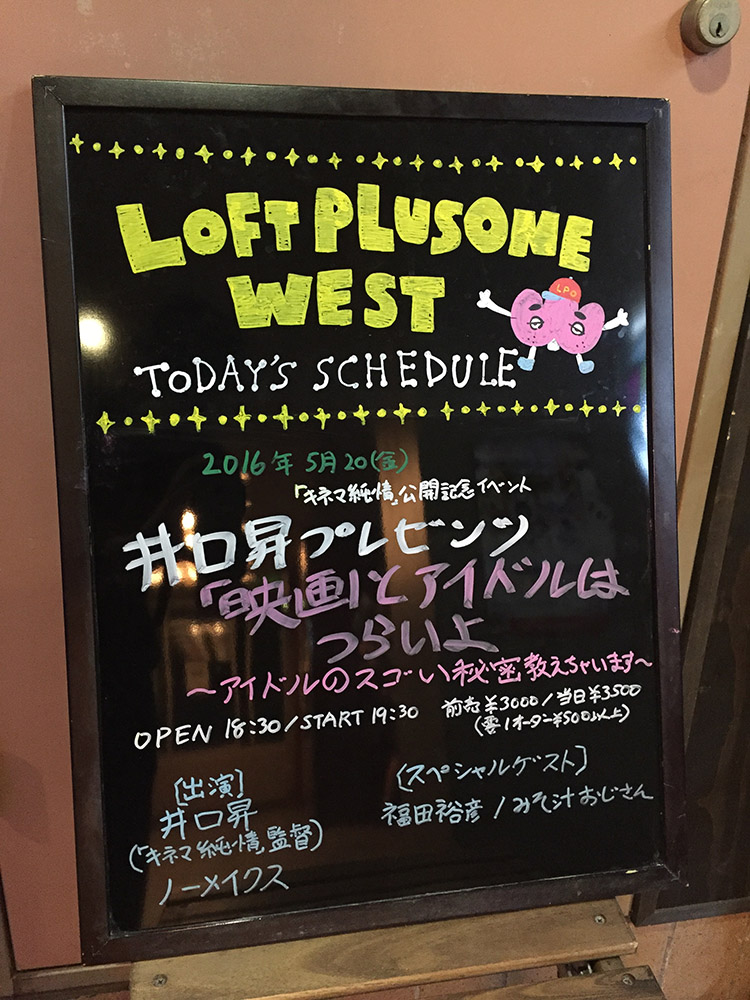 LOFT PLUSONE
WEST
LPO
TODAY'S SCHEDULE
2016年 5月20(金)
「キネマ純情」公開記念イベント
井口昇プレゼンツ
「映画」とアイドルは
つらいよ
～アイドルのスゴい秘密教えちゃいます～
OPEN 18:30/START 19:30
前売¥3000/当日¥3500
(要1オーダー¥500以上)
[出演]
井口昇
(「キネマ純情」監督)
ノーメイクス
[スペシャルゲスト]
福田裕彦/みそ汁おじさん